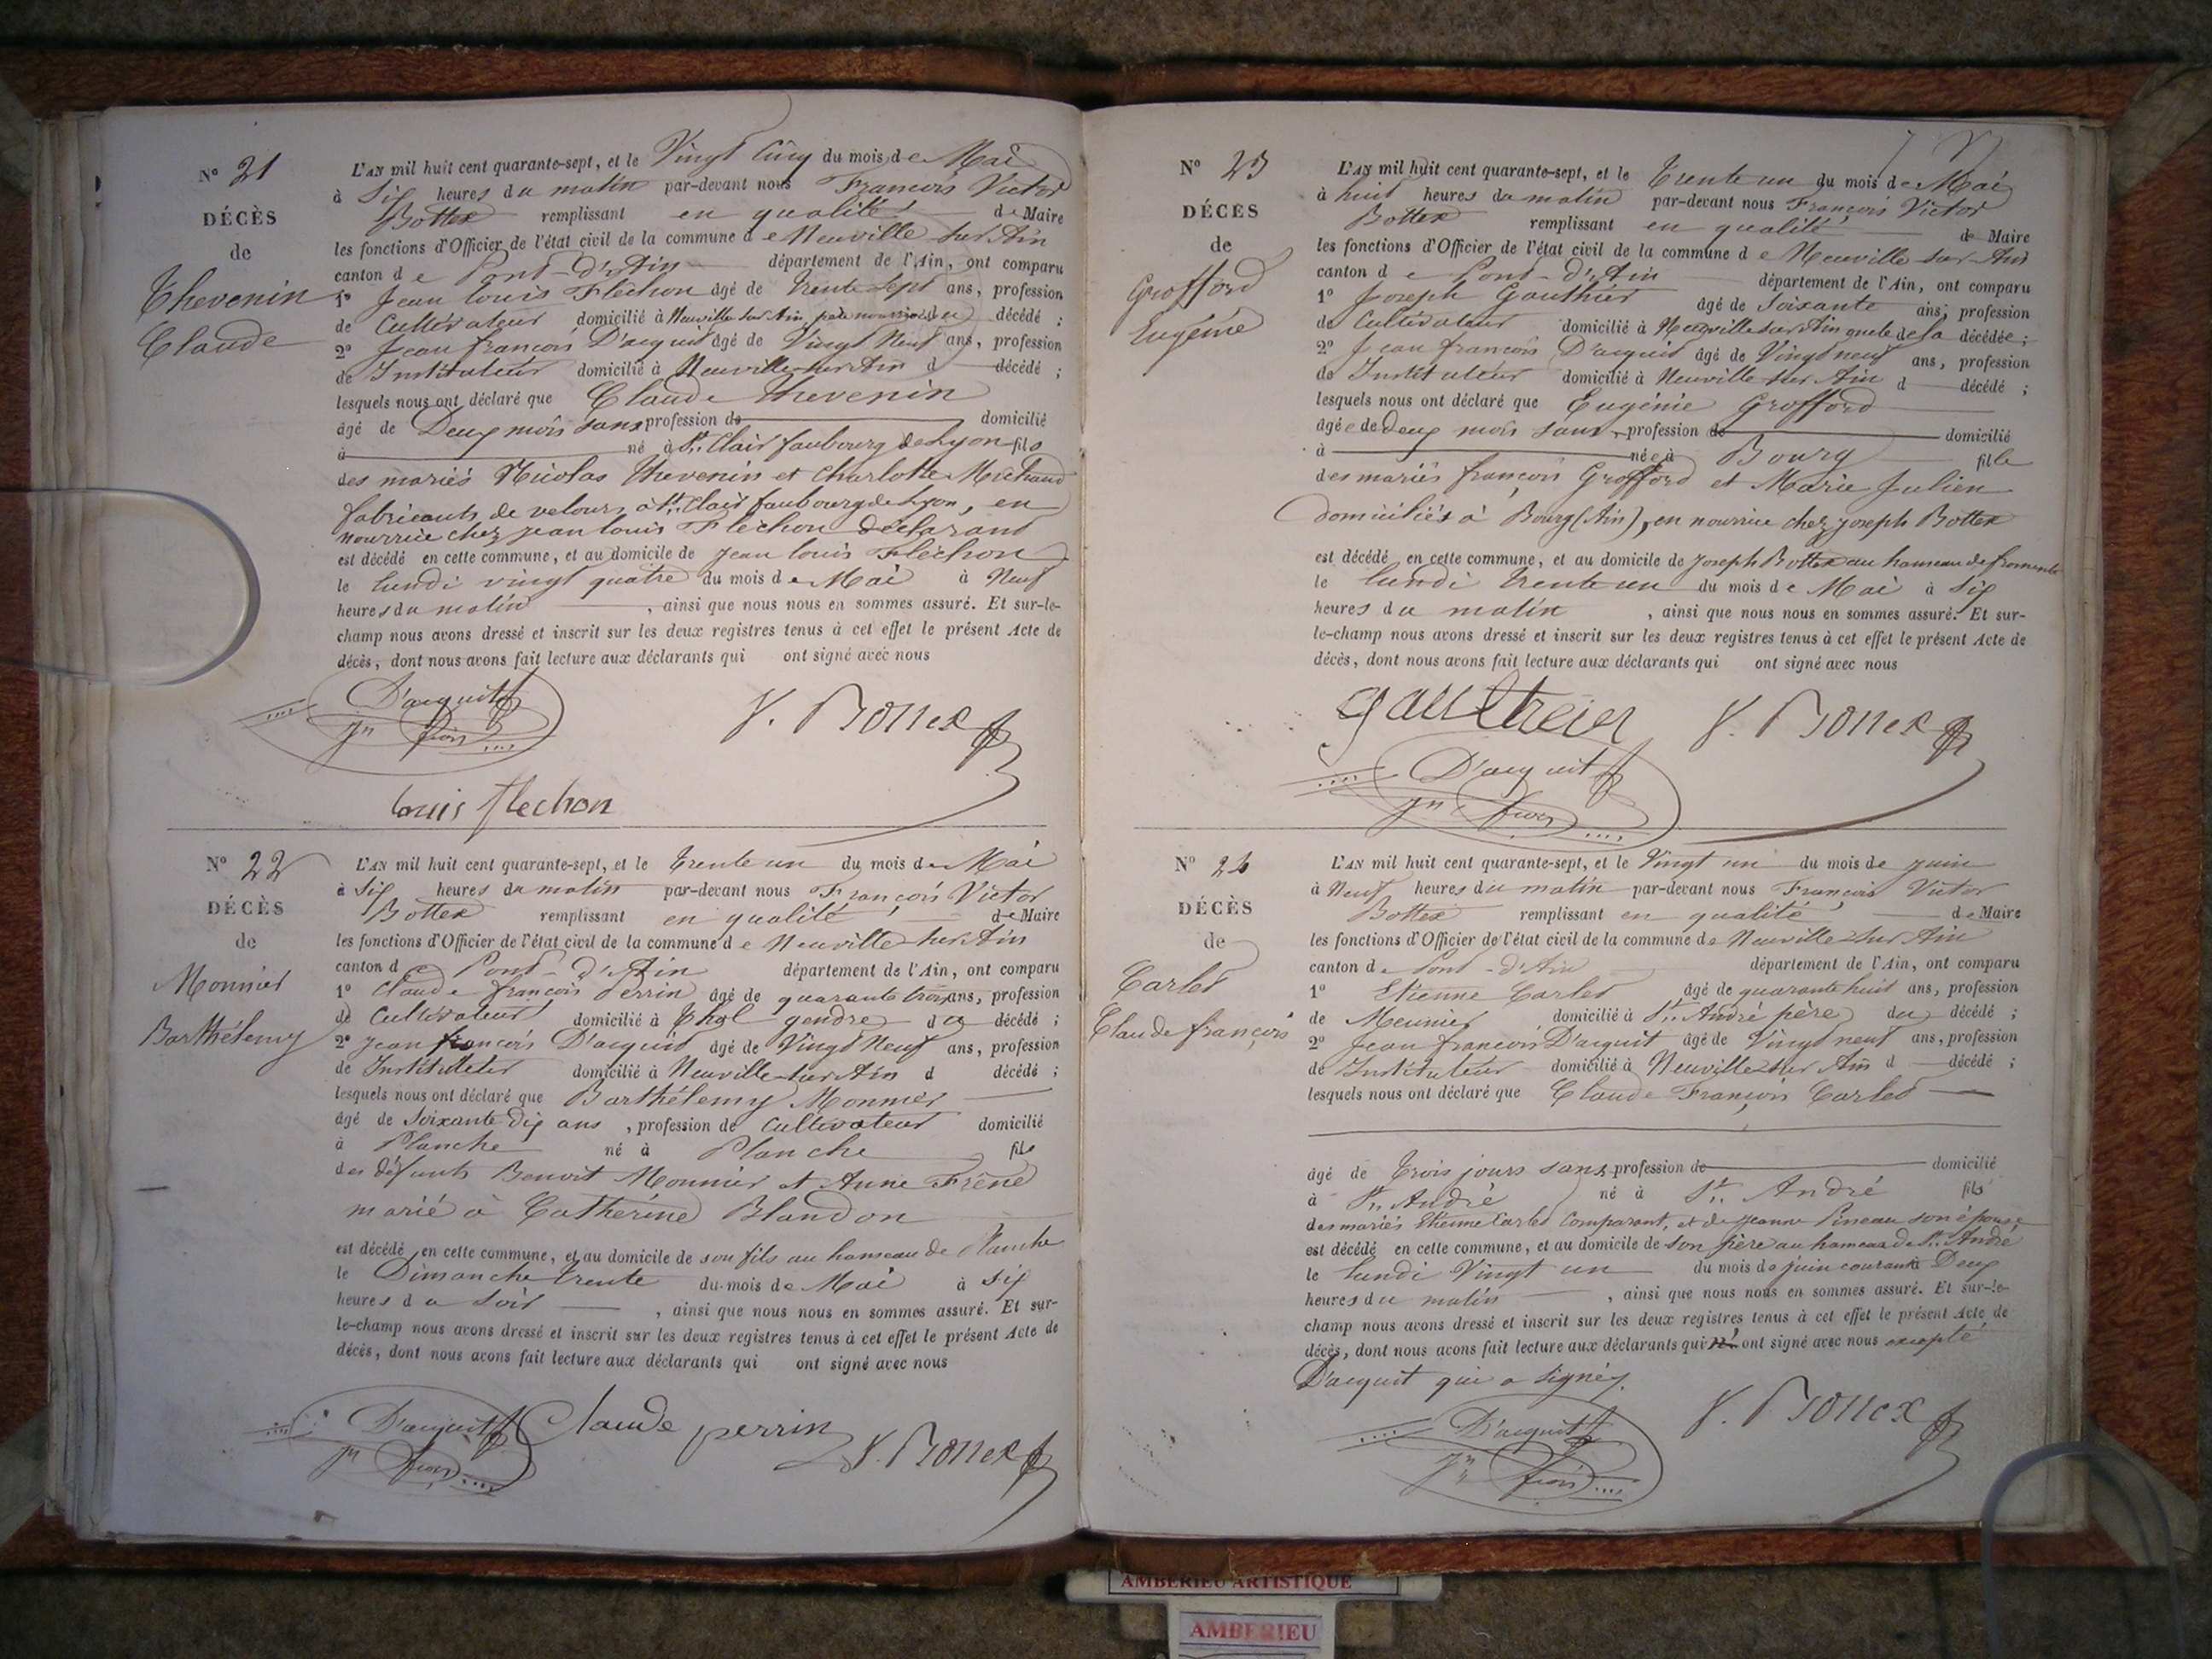 N° 21
DÉCÈS
de
Thevenin
Claude
L'AN mil huit cent quarante-sept, et le Vingt Cinq du mois de Mai
à Six heures du matin par-devant nous François Victor
Bottex remplissant en qualité de Maire
les fonctions d'Officier de l'état civil de la commune de Neuville sur Ain
canton de Pont-d'Ain département de l'Ain, ont comparu
1° Jean Louis Fléchon âgé de trente Sept ans, profession
de Cultivateur domicilié à Neuville sur Ain, père nourricier du décédé ;
2° Jean françois D'acquit âgé de Vingt Neuf ans, profession
de Instituteur domicilié à Neuville sur Ain d décédé ;
lesquels nous ont déclaré que Claude Thevenin
âgé de Deux mois sans profession de domicilié
à né à St. Clair faubourg de Lyon fils
des mariés Nicolas Thevenin et Charlotte Michaud
fabricants de velours à St. Clair faubourg de Lyon, en
nourrice chez jean louis Fléchon déclarant
est décédé en cette commune, et au domicile de jean louis Fléchon
le lundi vingt quatre du mois de Mai à Neuf
heures du matin , ainsi que nous nous en sommes assuré. Et sur-le-
champ nous avons dressé et inscrit sur les deux registres tenus à cet effet le présent Acte de
décès, dont nous avons fait lecture aux déclarants qui ont signé avec nous
D'acquit
Jn fcois
V. Bottex
louis flechon
N° 22
DÉCÈS
de
Monnier
Barthélemy
L'AN mil huit cent quarante-sept, et le trente un du mois de Mai
à Six heures du matin par-devant nous François Victor
Bottex remplissant en qualité de Maire
les fonctions d'Officier de l'état civil de la commune de Neuville sur Ain
canton de Pont-d'Ain département de l'Ain, ont comparu
1° Claude françois Perrin âgé de quarante trois ans, profession
de Cultivateur domicilié à Thol gendre du décédé ;
2° Jean françois D'acquit âgé de Vingt Neuf ans, profession
de Instituteur domicilié à Neuville sur Ain d décédé ;
lesquels nous ont déclaré que Barthélemy Monnier
âgé de Soixante dix ans , profession de Cultivateur domicilié
à Planche né à Planche fils
des défunts Benoit Monnier et Anne Frêne
marié à Catherine Blandon
est décédé en cette commune, et au domicile de son fils au hameau de Planche
le Dimanche trente du mois de Mai à Six
heures du Soir , ainsi que nous nous en sommes assuré. Et sur-
le-champ nous avons dressé et inscrit sur les deux registres tenus à cet effet le présent Acte de
décès, dont nous avons fait lecture aux déclarants qui ont signé avec nous
D'acquit
Jn fcois
Claude perrin
V. Bottex
N° 23
DÉCÈS
de
Grofford
Eugénie
L'AN mil huit cent quarante-sept, et le trente un du mois de Mai
à huit heures du matin par-devant nous François Victor
Bottex remplissant en qualité de Maire
les fonctions d'Officier de l'état civil de la commune de Neuville sur Ain
canton de Pont-d'Ain département de l'Ain, ont comparu
1° Joseph Gauthier âgé de Soixante ans, profession
de Cultivateur domicilié à Neuville sur Ain de la décédée ;
2° Jean françois D'acquit âgé de Vingt neuf ans, profession
de Instituteur domicilié à Neuville sur Ain d décédé ;
lesquels nous ont déclaré que Eugénie Grofford
âgée de deux mois sans profession de domicilié
à née à Bourg fille
des mariés françois Grofford et Marie Julien
domiciliés à Bourg (Ain), en nourrice chez joseph Bottex
est décédé en cette commune, et au domicile de joseph Bottex au hameau de fromente
le lundi trente un du mois de Mai à Six
heures du matin , ainsi que nous nous en sommes assuré. Et sur-
le-champ nous avons dressé et inscrit sur les deux registres tenus à cet effet le présent Acte de
décès, dont nous avons fait lecture aux déclarants qui ont signé avec nous
V. Bottex
D'acquit
Jn fcois
N° 24
DÉCÈS
de
Carlet
Claude françois
L'AN mil huit cent quarante-sept, et le Vingt un du mois de juin
à Neuf heures du matin par-devant nous François Victor
Bottex remplissant en qualité de Maire
les fonctions d'Officier de l'état civil de la commune de Neuville sur Ain
canton de Pont-d'Ain département de l'Ain, ont comparu
1° Etienne Carlet âgé de quarante huit ans, profession
de Meunier domicilié à St. André père du décédé ;
2° Jean françois D'acquit âgé de Vingt neuf ans, profession
de Instituteur domicilié à Neuville sur Ain d décédé ;
lesquels nous ont déclaré que Claude François Carlet
âgé de trois jours sans profession de domicilié
à St. André né à St. André fils
des mariés Etienne Carlet Comparant, et de Jeanne Pineau son épouse
est décédé en cette commune, et au domicile de son père au hameau de St. André
le lundi Vingt un du mois de juin courant à Deux
heures du matin , ainsi que nous nous en sommes assuré. Et sur-le-
champ nous avons dressé et inscrit sur les deux registres tenus à cet effet le présent Acte de
décès, dont nous avons fait lecture aux déclarants qui n' ont signé avec nous excepté
D'acquit qui a signé.
D'acquit
Jn fcois
V. Bottex
AMBERIEU ARTISTIQUE
AMBERIEU